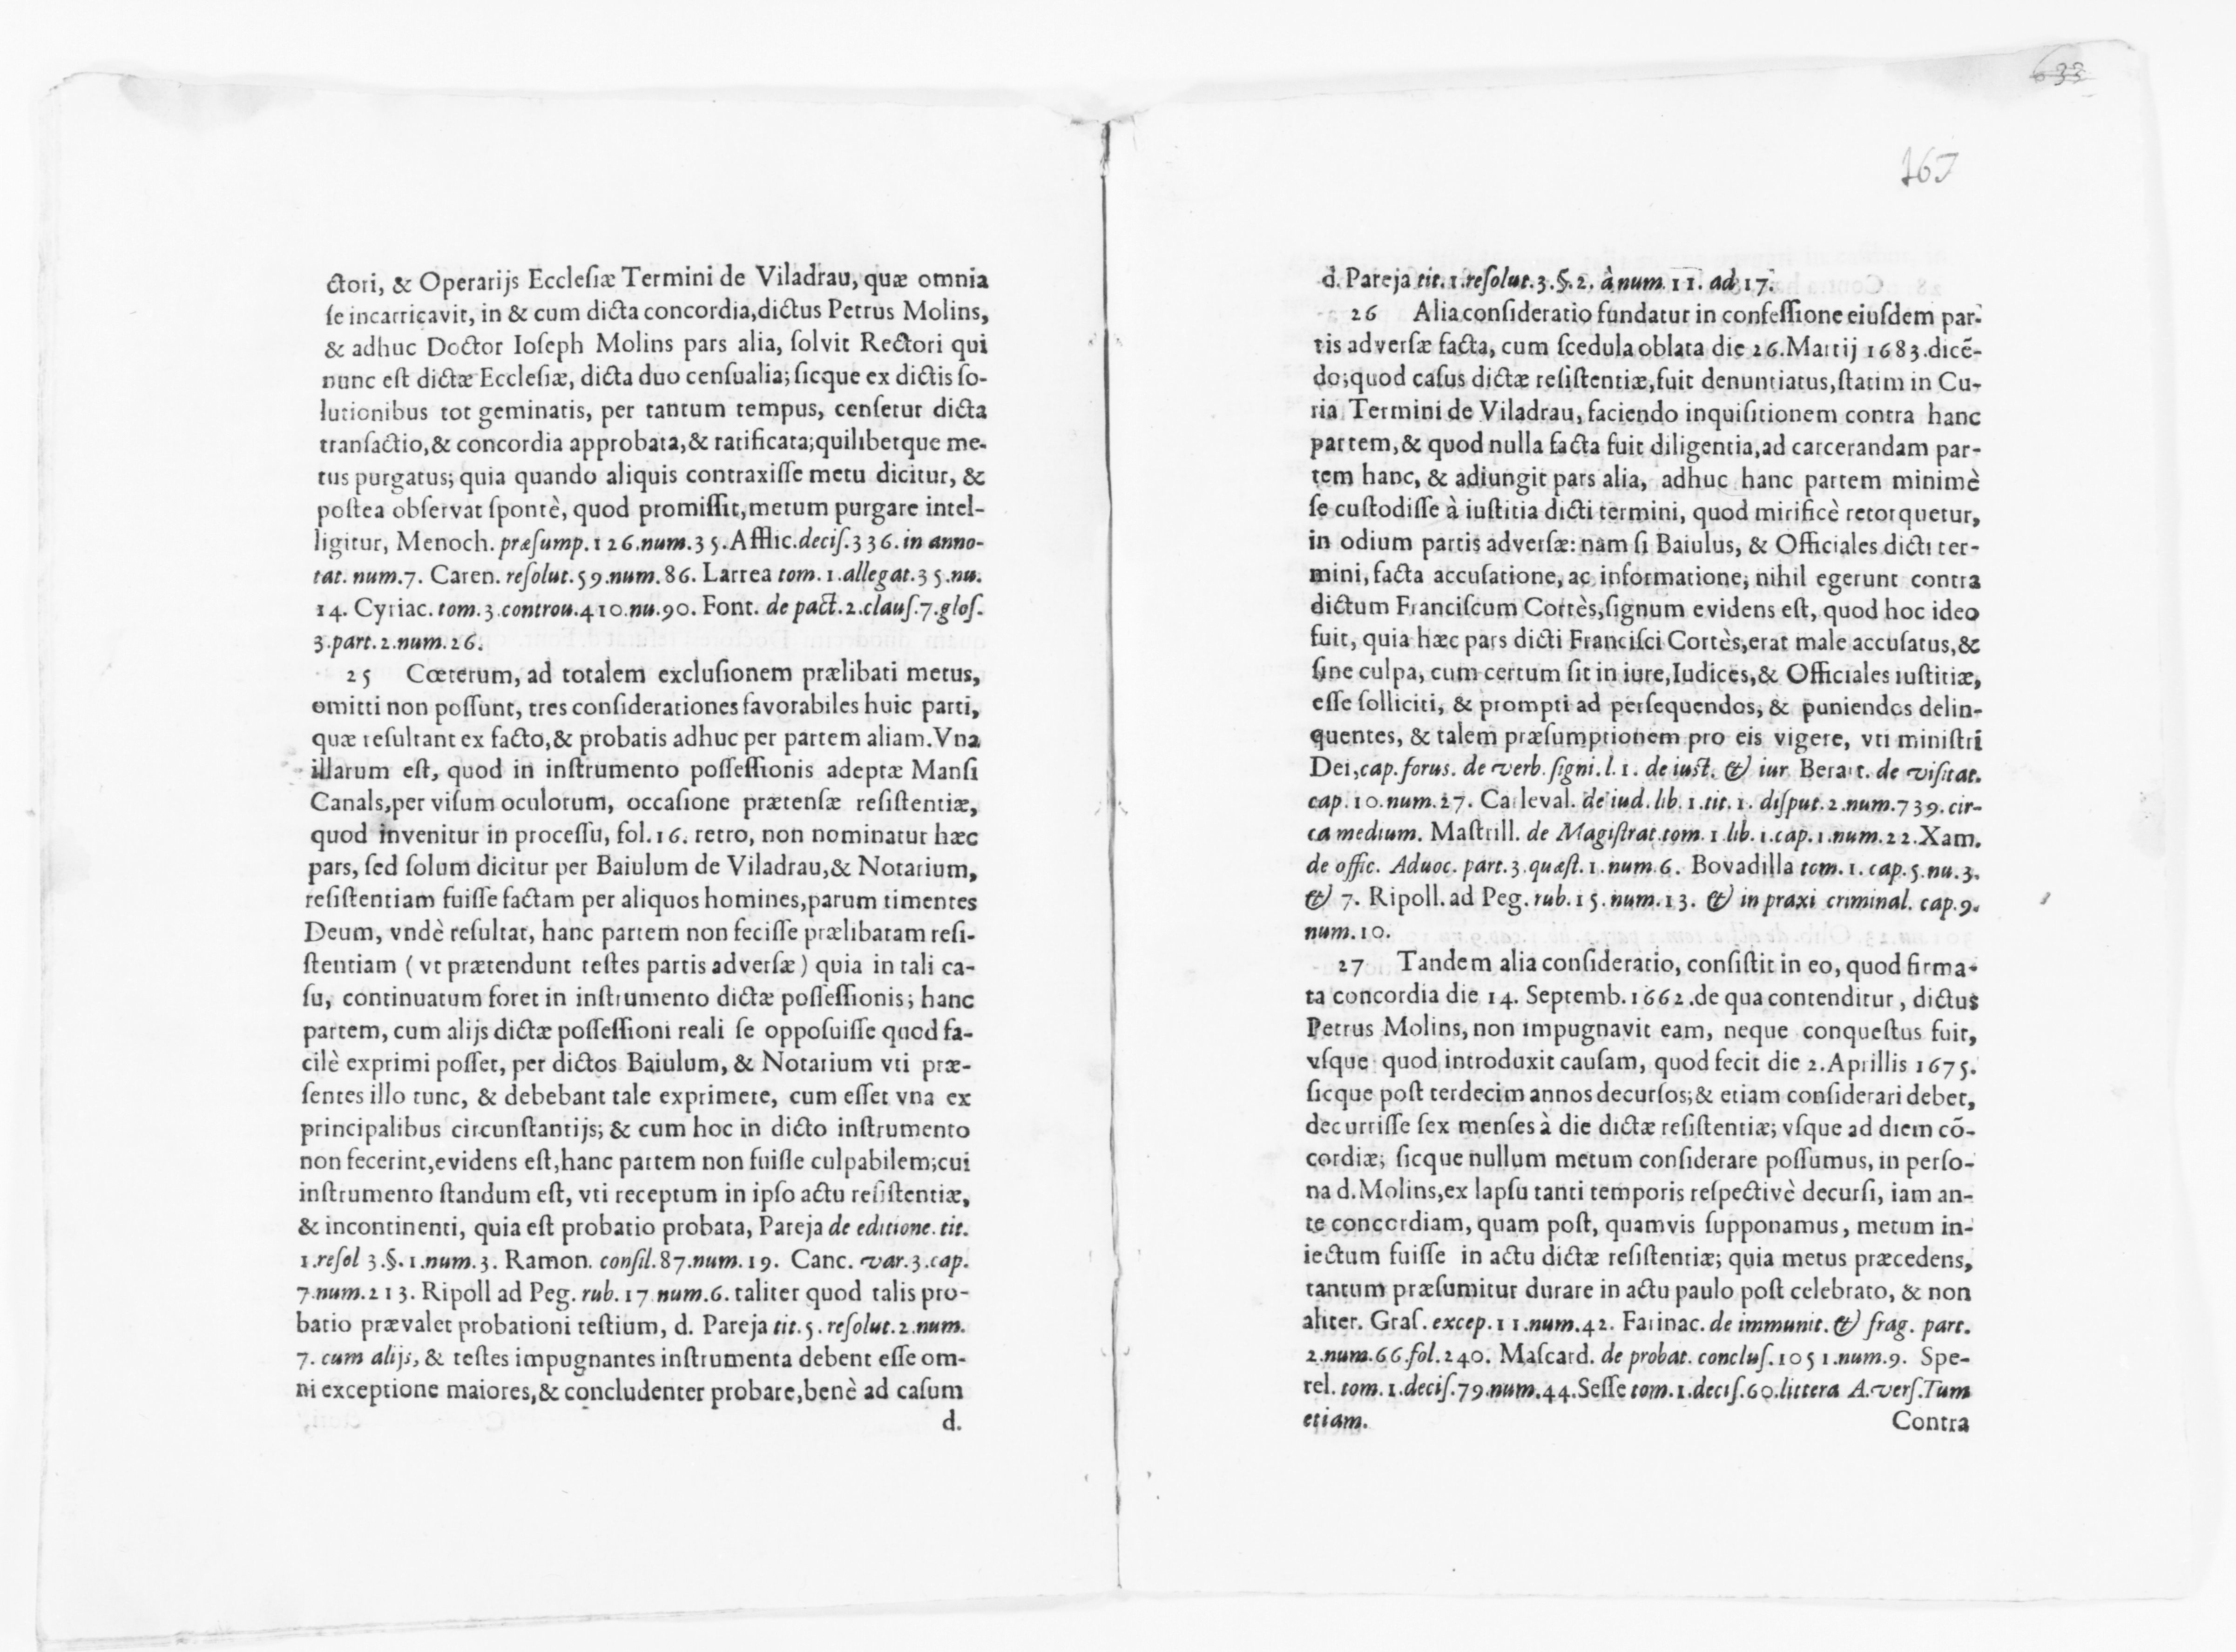 ctori, & Operarijs Ecclesiæ Termini de Viladrau, quæ omnia
ſe incarricavit, in & cum dicta concordia,dictus Petrus Molins,
& adhuc Doctor Ioſeph Molins pars alia, ſolvit Rectori qui
nunc eſt dictæ Eccleſiæ, dicta duo cenſualia; ſicque ex dictis ſo-
lutionibus tot geminatis, per tantum tempus, cenſetur dicta
tranſactio,& concordia approbata,& ratificata;quilibetque me-
tus purgatus; quia quando aliquis contraxiſſe metu dicitur, &
poſtea obſervat ſpontè, quod promiſſit,metum purgare intel-
ligitur, Menoch. præſump.126.num.35.Afflic.deciſ.336.in anno-
tat. num.7. Caren. reſolut.59.num.86. Larrea tom.1.allegat.35.nu.
14. Cyriac. tom.3.controu.410.nu.90. Font. de pact.2.clauſ.7.gloſ.
3.part.2.num.26.
25 Cœterum, ad totalem excluſionem prælibati metus,
omitti non poſſunt, tres conſiderationes favorabiles huic parti,
quæ reſultant ex facto,& probatis adhuc per partem aliam.Vna
illarum eſt, quod in inſtrumento poſſeſſionis adeptæ Manſi
Canals,per viſum oculorum, occaſione prætenſæ reſiſtentiæ,
quod invenitur in proceſſu, fol.16. retro, non nominatur hæc
pars, ſed ſolum dicitur per Baiulum de Viladrau,& Notarium,
reſiſtentiam fuiſſe factam per aliquos homines,parum timentes
Deum, vndè reſultat, hanc partem non feciſſe prælibatam reſi-
ſtentiam ( vt prætendunt teſtes partis adverſæ ) quia in tali ca-
ſu, continuatum foret in inſtrumento dictæ poſſeſſionis; hanc
partem, cum alijs dictæ poſſeſſioni reali ſe oppoſuiſſe quod fa-
cilè exprimi poſſet, per dictos Baiulum, & Notarium vti præ-
ſentes illo tunc, & debebant tale exprimere, cum eſſet vna ex
principalibus circunſtantijs; & cum hoc in dicto inſtrumento
non fecerint,evidens eſt,hanc partem non fuiſſe culpabilem;cui
inſtrumento ſtandum eſt, vti receptum in ipſo actu reſiſtentiæ,
& incontinenti, quia eſt probatio probata, Pareja de editione. tit.
1.reſol 3.§.1.num.3. Ramon. conſil.87.num.19. Canc. var.3.cap.
7.num.213. Ripoll ad Peg. rub.17 num.6. taliter quod talis pro-
batio prævalet probationi teſtium, d. Pareja tit.5.reſolut.2.num.
7. cum alijs, & teſtes impugnantes inſtrumenta debent eſſe om-
ni exceptione maiores,& concludenter probare,benè ad caſum
d.
633
167
d. Pareja tit.1.reſolut.3.§.2. à num.11. ad 17.
26 Alia conſideratio fundatur in confeſſione eiuſdem par-
tis adverſæ facta, cum ſcedula oblata die 26.Martij 1683.dicẽ-
do;quod caſus dictæ reſiſtentiæ,fuit denuntiatus,ſtatim in Cu-
ria Termini de Viladrau, faciendo inquiſitionem contra hanc
partem,& quod nulla facta fuit diligentia,ad carcerandam par-
tem hanc, & adiungit pars alia, adhuc hanc partem minimè
ſe cuſtodiſſe à iuſtitia dicti termini, quod mirificè retorquetur,
in odium partis adverſæ: nam ſi Baiulus, & Officiales dicti ter-
mini, facta accuſatione, ac informatione, nihil egerunt contra
dictum Franciſcum Cortès,ſignum evidens eſt, quod hoc ideo
fuit, quia hæc pars dicti Franciſci Cortès,erat male accuſatus,&
ſine culpa, cum certum ſit in iure,Iudices,& Officiales iuſtitiæ,
eſſe ſolliciti, & prompti ad perſequendos, & puniendos delin-
quentes, & talem præſumptionem pro eis vigere, vti miniſtri
Dei,cap.forus. de verb.ſigni.l.1. de iuſt. & iur. Berart. de viſitat.
cap.10.num.27. Carleval. de iud.lib.1.tit.1. diſput.2.num.739.cir-
ca medium. Maſtrill. de Magiſtrat.tom.1.lib.1.cap.1.num.22.Xam.
de offic. Aduoc. part.3.quæſt.1.num.6. Bovadilla tom.1.cap.5.nu.3.
& 7. Ripoll. ad Peg. rub.15.num.13. & in praxi criminal. cap.9.
num.10.
27 Tandem alia conſideratio, conſiſtit in eo, quod firma-
ta concordia die 14. Septemb.1662.de qua contenditur, dictus
Petrus Molins, non impugnavit eam, neque conqueſtus fuit,
vſque quod introduxit cauſam, quod fecit die 2.Aprillis 1675.
ſicque poſt terdecim annos decurſos;& etiam conſiderari debet,
decurriſſe ſex menſes à die dictæ reſiſtentiæ; vſque ad diem cõ-
cordiæ; ſicque nullum metum conſiderare poſſumus, in perſo-
na d.Molins,ex lapſu tanti temporis reſpectivè decurſi, iam an-
te concordiam, quam poſt, quamvis ſupponamus, metum in-
iectum fuiſſe in actu dictæ reſiſtentiæ; quia metus præcedens,
tantum præſumitur durare in actu paulo poſt celebrato, & non
aliter. Graſ. excep.11.num.42. Farinac. de immunit. & frag. part.
2.num.66.fol.240. Maſcard. de probat. concluſ.1051.num.9. Spe-
rel. tom.1.deciſ.79.num.44.Seſſe tom.1.deciſ.60.littera A.verſ.Tum
etiam.
Contra